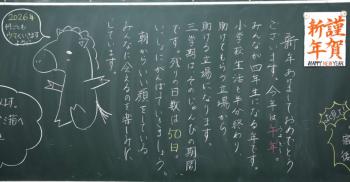 謹賀
新年
HAPPY NEW YEAR
新年あけましておめでとう
ございます。今年は午年。
みんなが四年生になる年です。
小学校生活も半分終わり、
助けてもらう立場から
助ける立場になります。
三学期はそのじゅんびの期間
です。残りの日数は50日。
いっしょにがんばっていきましょう。
朝からいい顔をしている
みんなに会えるのを楽しみに
しています。
2026年